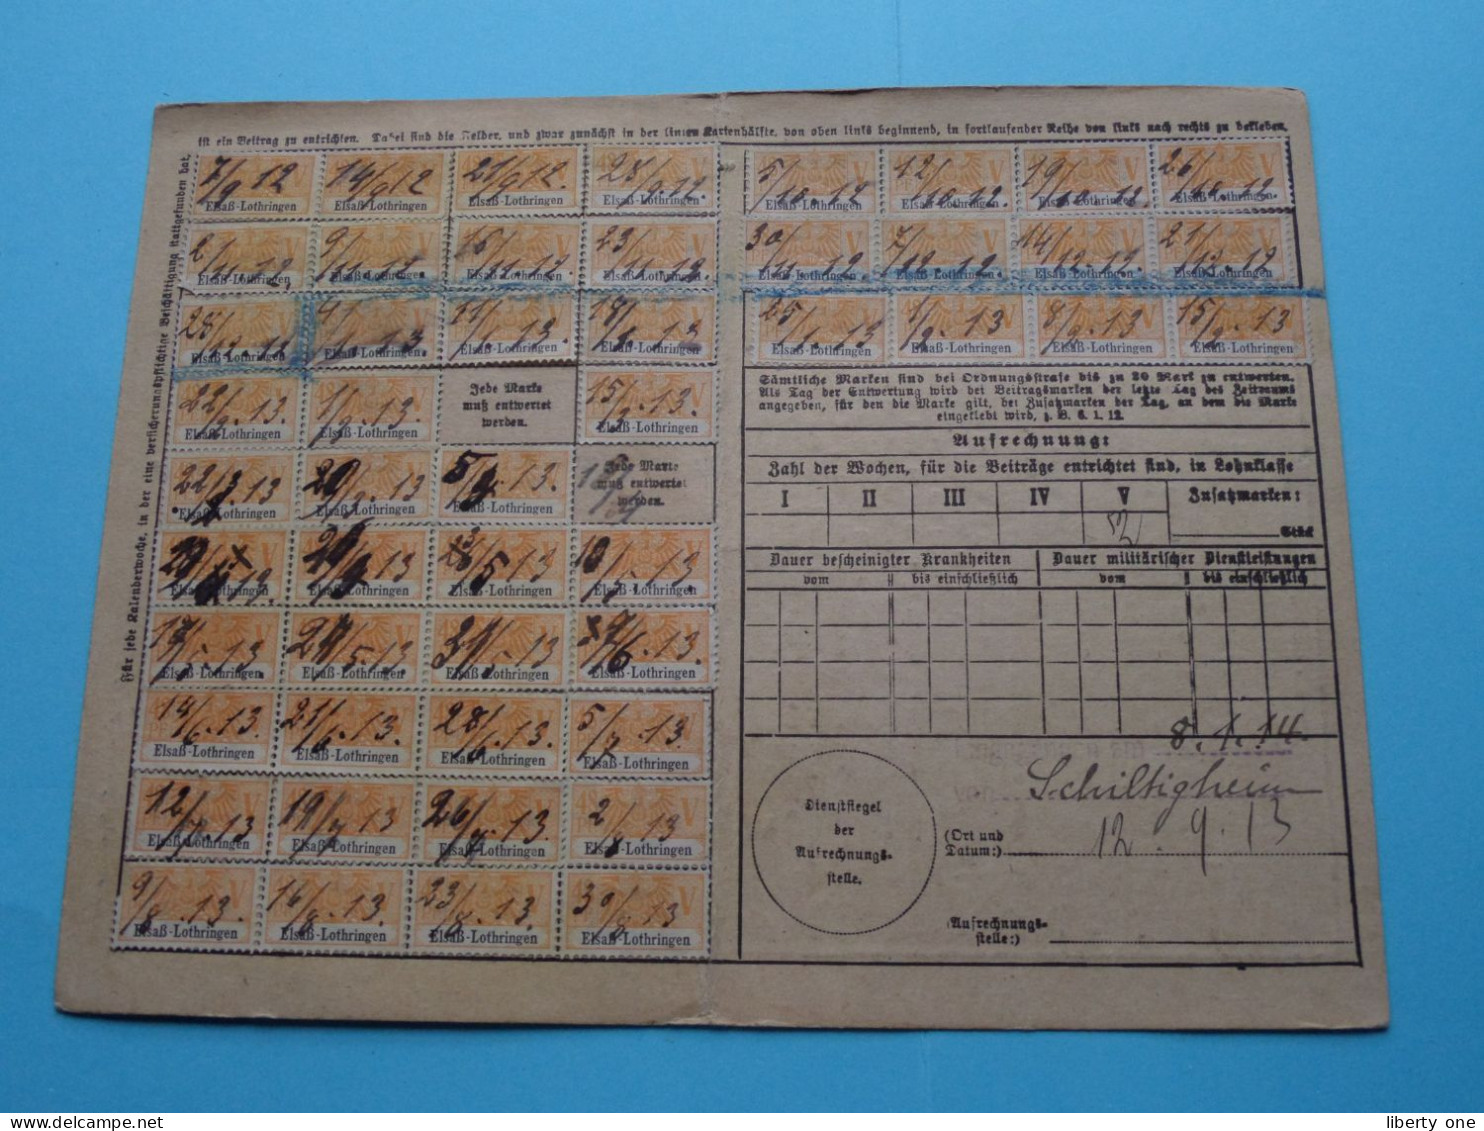 ist ein Beitrag zu entrichten. Dabei sind die Felder, und zwar zunächst in der linken Kartenhälfte, von oben links beginnend, in fortlaufender Reihe von links nach rechts zu bekleben.
Für jede Kalenderwoche, in der eine versicherungspflichtige Beschäftigung stattgefunden hat,
7/9 12 14/9 12 21/9 12. 28/9.12. 5/10.12 12/10.12. 19/10.12 26/10.12
Elsaß-Lothringen Elsaß-Lothringen Elsaß-Lothringen Elsaß-Lothringen Elsaß-Lothringen Elsaß-Lothringen Elsaß-Lothringen Elsaß-Lothringen
2/11.12 9/11.12 16/11.12 23/11.12 30/11.12 7/12.12. 14/12.12. 21/12.12
Elsaß-Lothringen Elsaß-Lothringen Elsaß-Lothringen Elsaß-Lothringen Elsaß-Lothringen Elsaß-Lothringen Elsaß-Lothringen Elsaß-Lothringen
28/12.12 4/1.13. 11/1.13. 18/1.13 25/1.13 1/2.13 8/2.13 15/2.13
Elsaß-Lothringen Elsaß-Lothringen Elsaß-Lothringen Elsaß-Lothringen Elsaß-Lothringen Elsaß-Lothringen Elsaß-Lothringen Elsaß-Lothringen
22/2.13 1/3.13. 15/3.13.
Elsaß-Lothringen Elsaß-Lothringen Elsaß-Lothringen
Jede Marke
muß entwertet
werden.
22/3 13 13 5/4.13.
Elsaß-Lothringen Elsaß-Lothringen Elsaß-Lothringen
Jede Marke
muß entwertet
werden.
13 5 13 10/5.13
Elsaß-Lothringen Elsaß-Lothringen Elsaß-Lothringen Elsaß-Lothringen
17/5.13 24/5.13 31/5.13 6.13.
Elsaß-Lothringen Elsaß-Lothringen Elsaß-Lothringen Elsaß-Lothringen
14/6.13. 21/6.13. 28/6.13. 5/7.13.
Elsaß-Lothringen Elsaß-Lothringen Elsaß-Lothringen Elsaß-Lothringen
12/7.13 19/7 13 26/7.13 2/8.13
Elsaß-Lothringen Elsaß-Lothringen Elsaß-Lothringen Elsaß-Lothringen
9/8.13. 16/8.13. 23/8.13. 30/8.13
Elsaß-Lothringen Elsaß-Lothringen Elsaß-Lothringen Elsaß-Lothringen
Sämtliche Marken sind bei Ordnungsstrafe bis zu 20 Mark zu entwerten.
Als Tag der Entwertung wird bei Beitragsmarken der letzte Tag des Zeitraums
angegeben, für den die Marke gilt, bei Zusatzmarken der Tag, an dem die Marke
eingeklebt wird, z. B. 6. 1. 12.
Aufrechnung:
Zahl der Wochen, für die Beiträge entrichtet sind, in Lohnklasse
I II III IV V Zusatzmarken:
52 Stück
Dauer bescheinigter Krankheiten Dauer militärischer Dienstleistungen
vom bis einschließlich vom bis einschließlich
8.1.14.
Schiltigheim
(Ort und
Datum:) 12. 9. 13
Dienstsiegel
der
Aufrechnungs-
stelle.
(Aufrechnungs-
stelle:)
liberty one